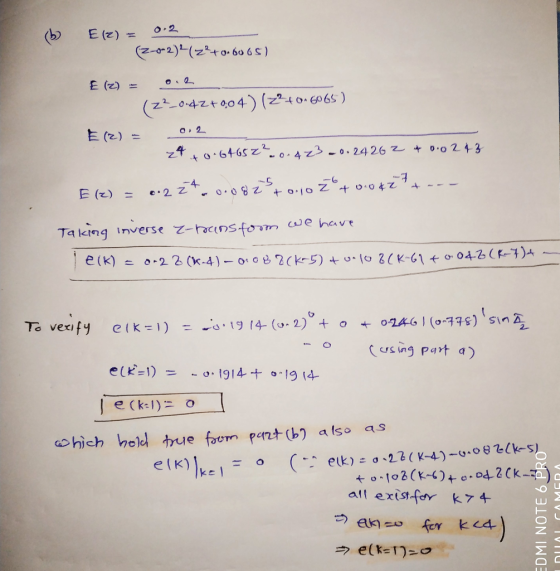 (b) E(z) = 0.2
(z-0.2)²(z²+0.6065)
E(z) = 0.2
(z²-0.4z+0.04)(z²+0.6065)
E(z) = 0.2
z⁴+0.6465z²-0.4z³-0.2426z+0.0243
E(z) = 0.2z⁻⁴-0.08z⁻⁵+0.10z⁻⁶+0.04z⁻⁷+---
Taking inverse z-transform we have
e(k) = 0.2δ(k-4)-0.08δ(k-5)+0.10δ(k-6)+0.04δ(k-7)+---
To verify e(k=1) = -0.1914(0.2)⁰+0+0.2461(0.778)¹sin π/2
- 0 (using part a)
e(k=1) = -0.1914+0.1914
e(k=1) = 0
which hold true from part(b) also as
e(k)|k=1 = 0 (∵ e(k)=0.2δ(k-4)-0.08δ(k-5)
+0.10δ(k-6)+0.04δ(k-7)
all exist for k>4
⇒ e(k)=0 for k<4)
⇒ e(k=1)=0
REDMI NOTE 6 PRO
DUAL CAMERA